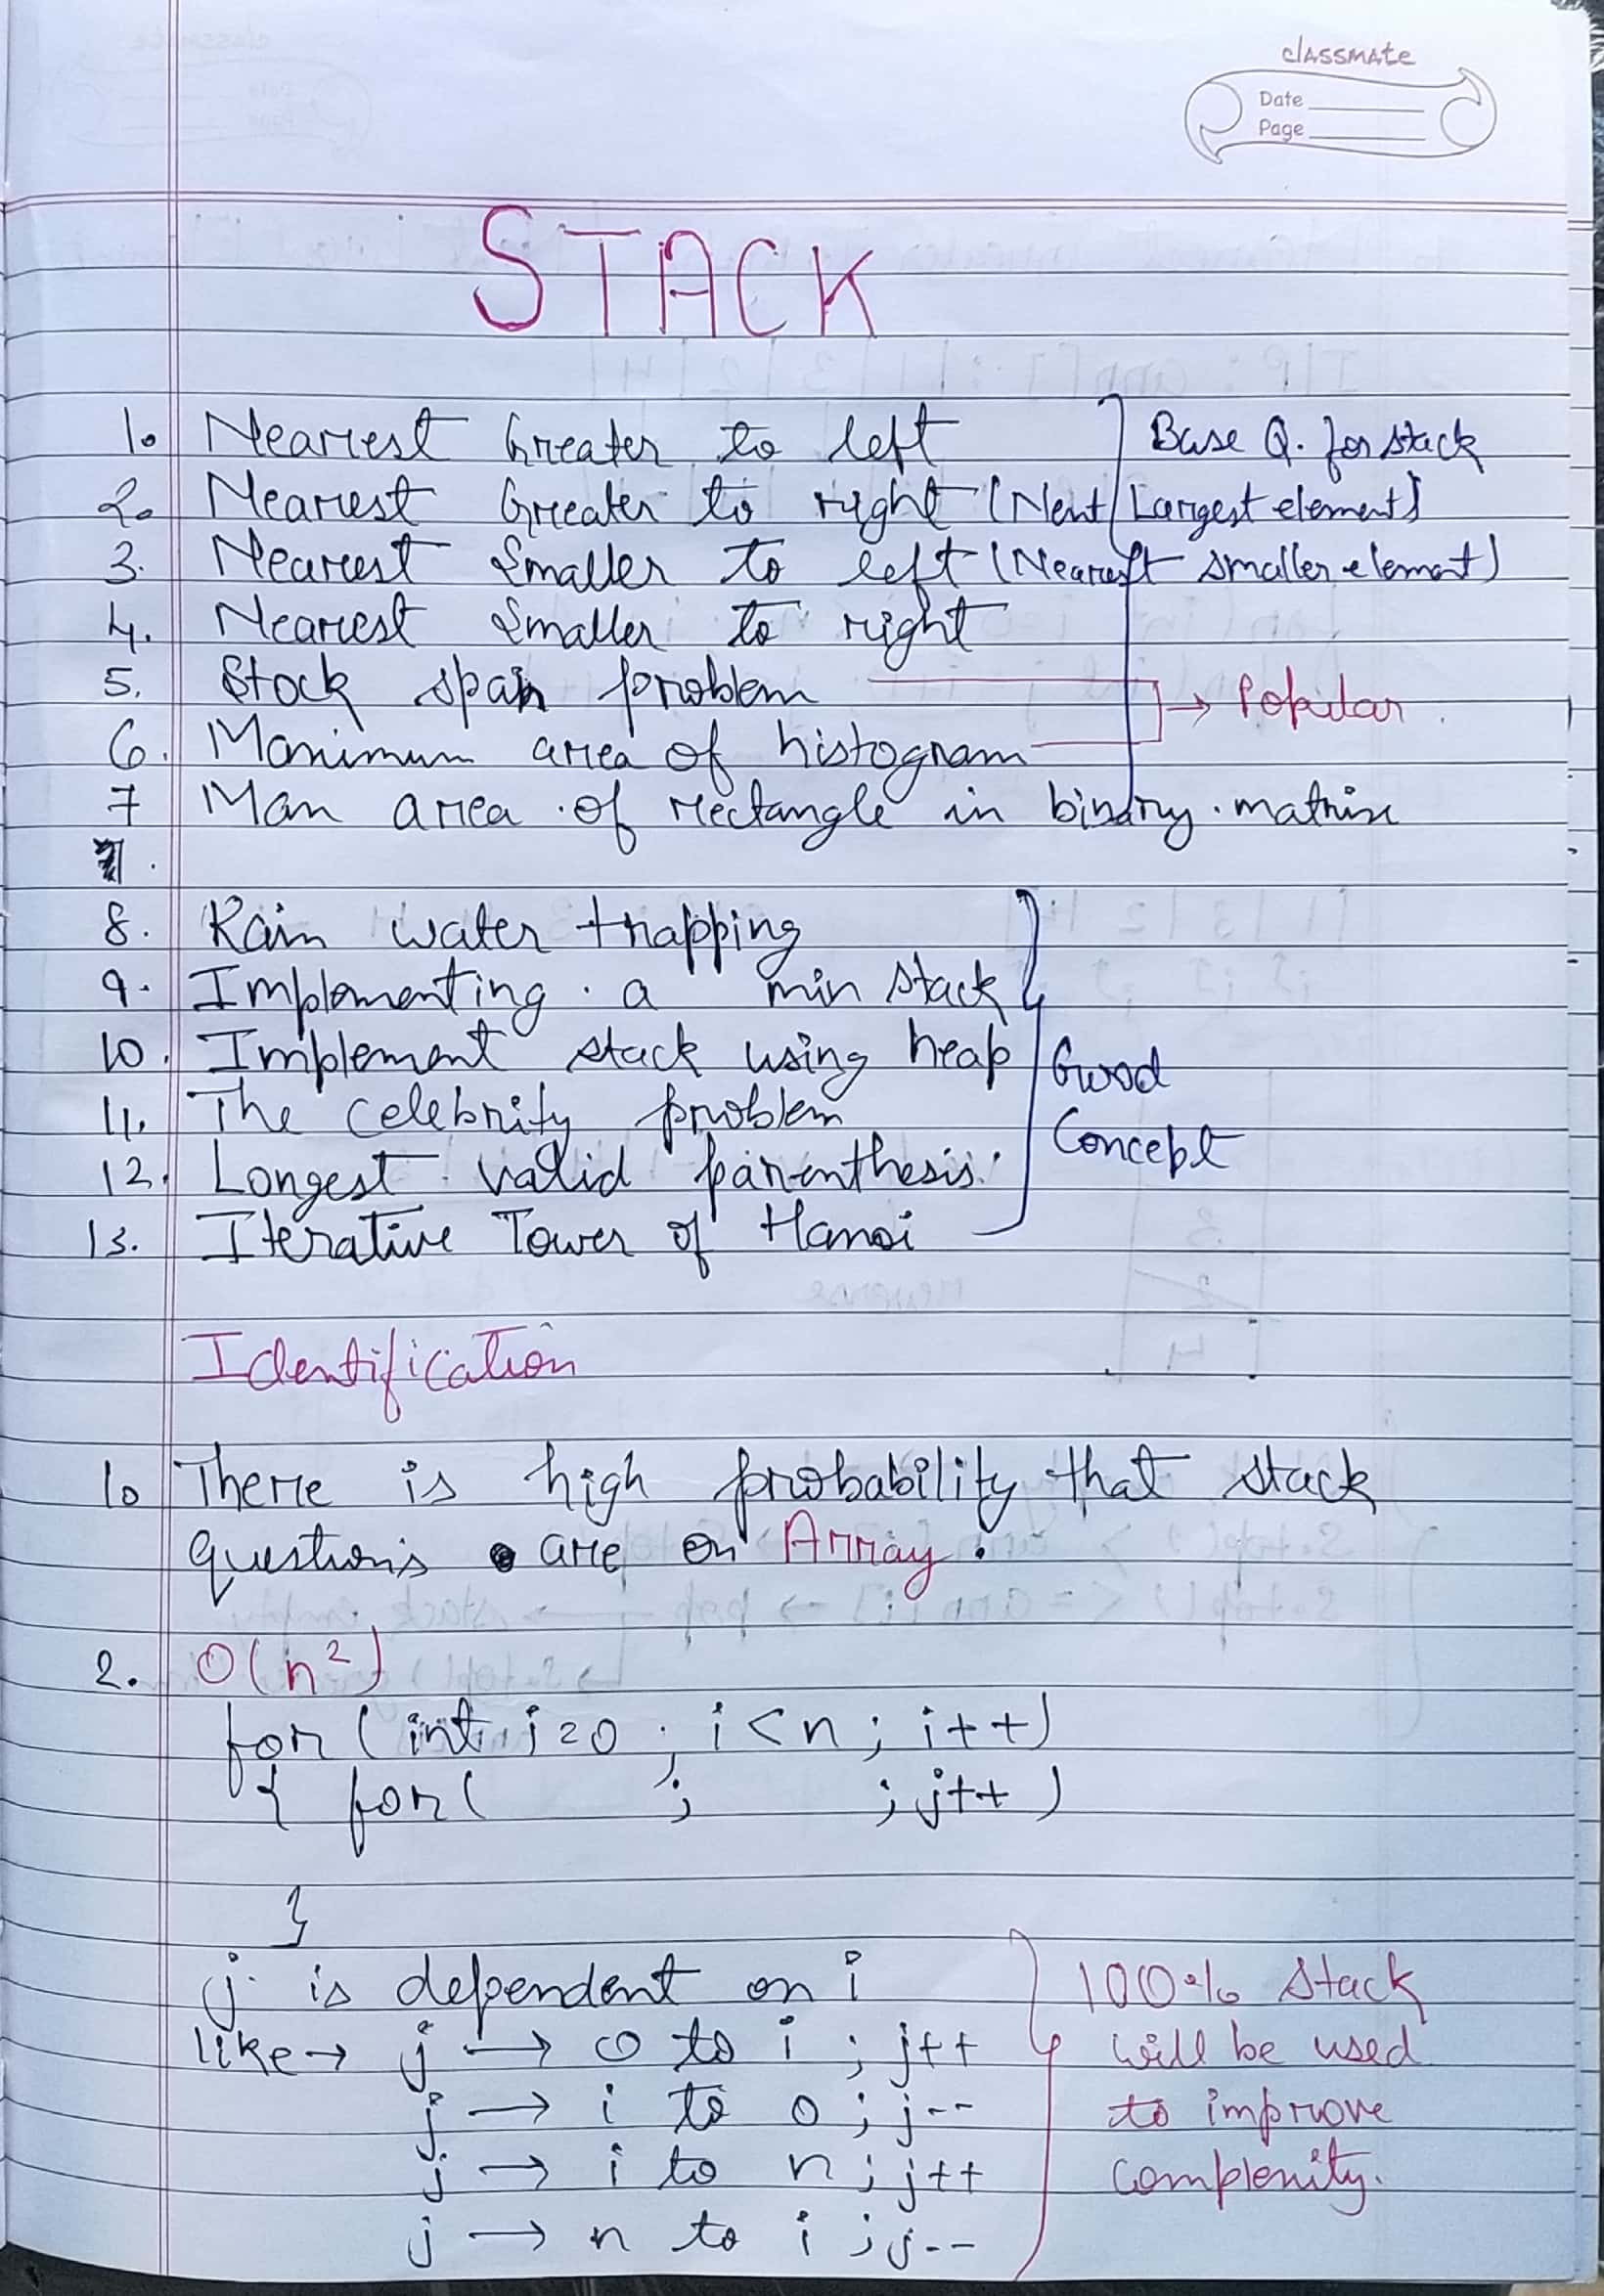 classmate
Date
Page
STACK
1. Nearest Greater to left
Base Q. for stack
2. Nearest Greater to right (Next Largest element)
3. Nearest Smaller to left (Nearest smaller element)
4. Nearest Smaller to right
5. Stock span problem
→ Popular
6. Maximum area of histogram
7 Max area of rectangle in binary matrix
8. Rain water trapping
9. Implementing a min stack
10. Implement stack using heap
Good
11. The celebrity problem
Concept
12. Longest valid parenthesis
13. Iterative Tower of Hanoi
Identification
1. There is high probability that stack
questions are on Array.
2. O(n²)
for (int i=0 ; i<n ; i++)
{ for( ; ; j++ )
}
j is dependent on i
100% stack
like → j → 0 to i ; j++
will be used
j → i to 0 ; j--
to improve
j → i to n ; j++
complexity.
j → n to i ; j--